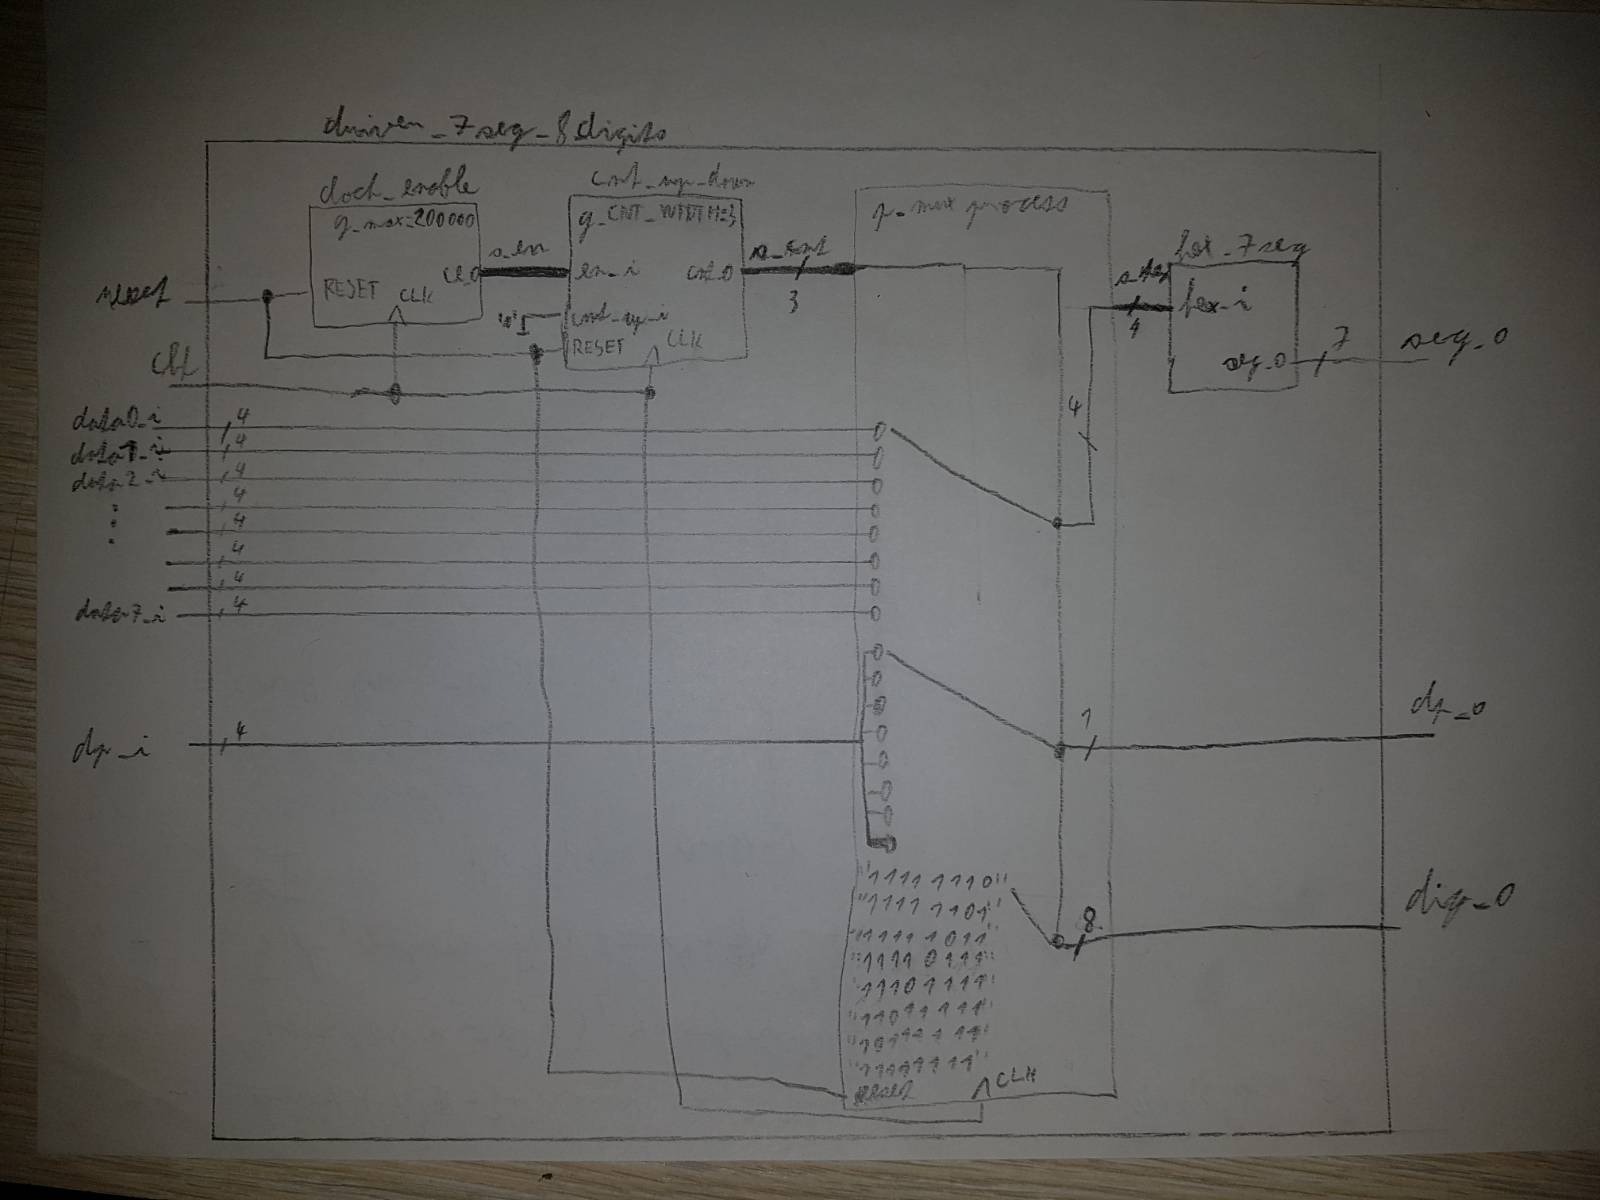 driver_7seg_8digits
clock_enable
g_max=200000
RESET
CLK
ce_o
s_en
cnt_up_down
g_CNT_WIDTH=3
en_i
cnt_o
cnt_up_i
RESET
CLK
s_cnt
3
p_mux process
hex_7seg
s_hex
4
hex_i
seg_o
7
seg_o
reset
clk
data0_i
4
data1_i
4
data2_i
4
4
4
4
4
data7_i
4
4
dp_i
4
1
dp_o
"1111 1110"
"1111 1101"
"1111 1011"
"1111 0111"
"1110 1111"
"1101 1111"
"1011 1111"
8
dig_o
reset
CLK